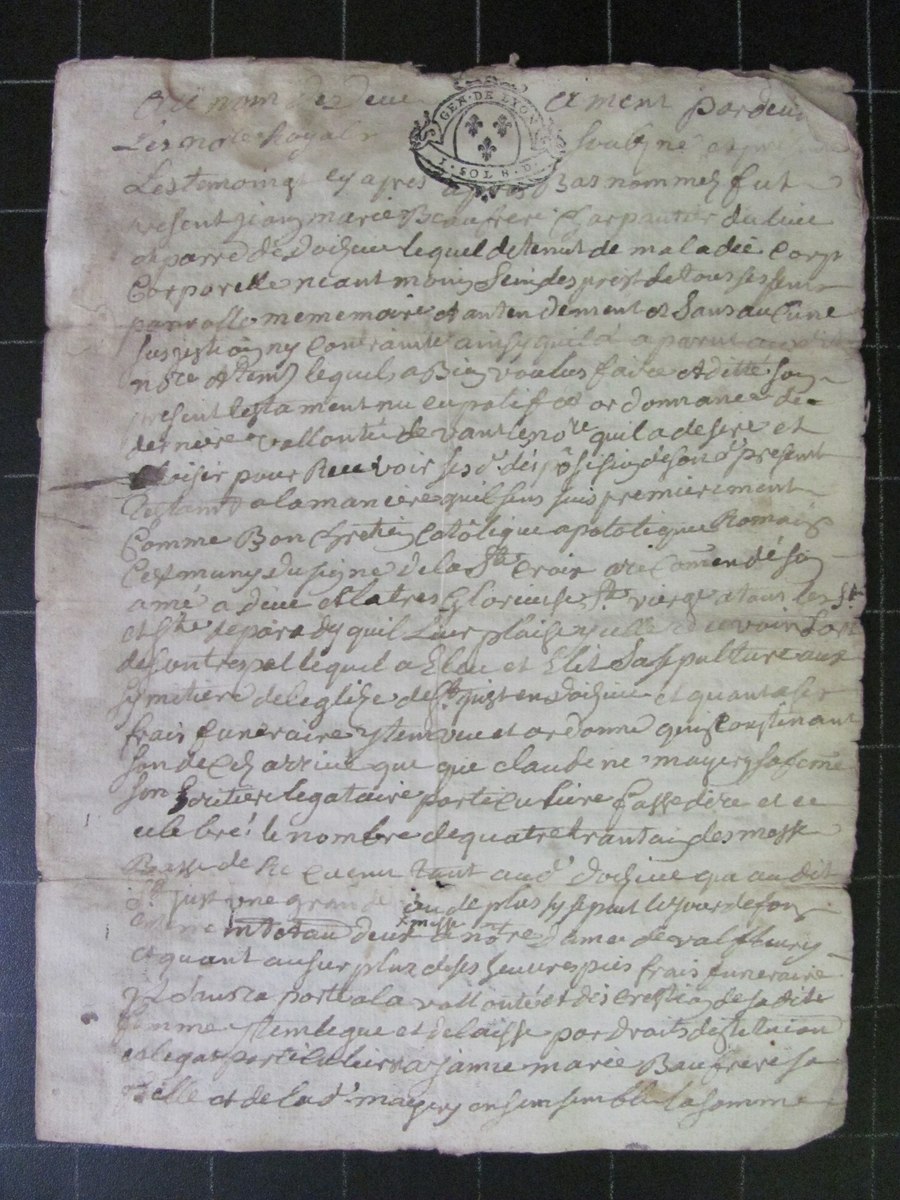 Au nom de Dieu amen par deva
Les note Royal soubsigne et present
Les temoings cy apres Bas nommes fut
present Jean marie Beaufrere Charpantier du lieu
et parre de doizieu lequel detenut de maladie corp
Corporelle neant moings sein desprest de tous ses sens
parrolle memoire et antendement et sans aucune
susjestion ny contrainte ainsy quil a parut audit
note et tem lequels a Bien voulus faire et ditté son
present testament nuncupatif et ordonnance de
derniere vollonté devant le note quil a desere et
choisir pour Recevoir ses d. disposision de son d. present
testamt a la maniere quil sen suis premierement
Comme Bon Chretien Catôlique apotolique Romain
cest muny du signe de la Ste Croix a recomendé son
amé a dieu et la tres Glorieuse Ste vierge a tous les St
et Ste de paradis quil leur plaise icelle recevoir lors
de son trespat lequel a Elue et Elit Sa sepulture aux
symitiere de leglize de St just en doizieu et quant a ser
frais funeraire ytem veut et ordonne quincontinant
son decet arrivé que que claudine mayery sa feme
son heritiere legataire particuliere fasse dire et ce
celebré le nombre de quatre trantai des messe
Basse de Requenne tant aud. doizieu qua au dit
St just une grande ou de plus sy se peut le jour de son
intotau deux messe a notre dame de valfleury
et quant au surplus de ses heuvres pies frais funeraire
sa porte a la vollonté et discrestion de sa dite
femme ytem legue et delaisse par droits destitution
et legat particuliere a jeanne marie Baufrere sa
fille et de la d. mayery ensemble la somme